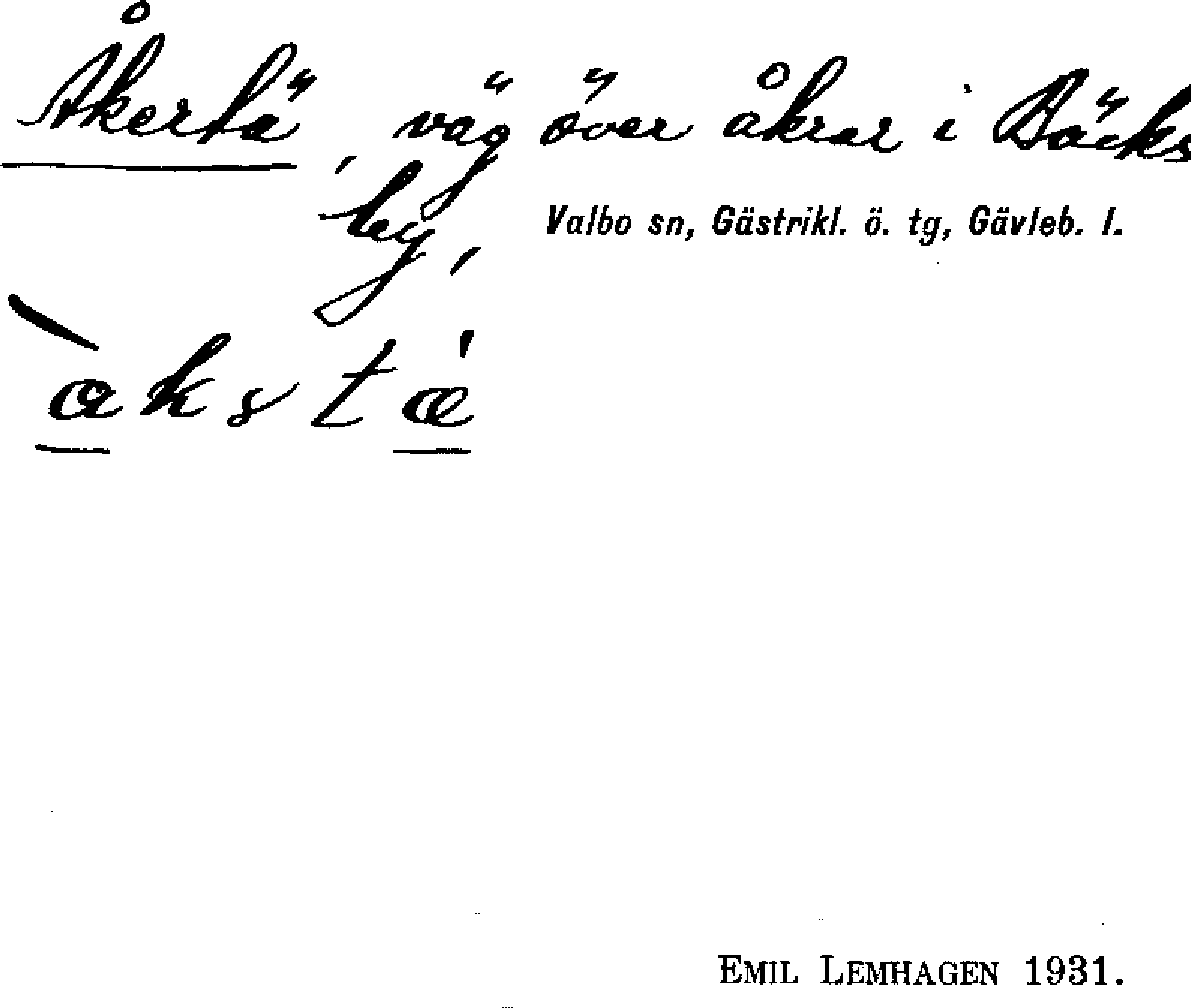 Åkertä, väg över åkrar i Bäcks
by,
Valbo sn, Gästrikl. ö. tg, Gävleb. l.
àkstǽ
EMIL LEMHAGEN 1931.